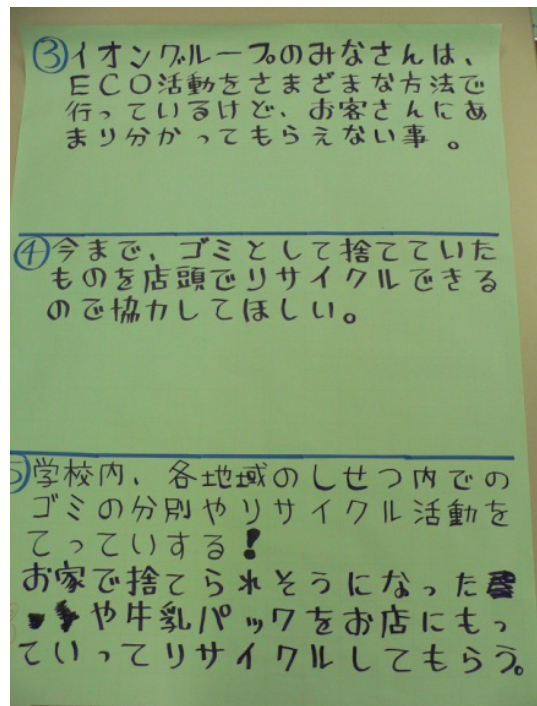 ③イオングループのみなさんは、
ECO活動をさまざまな方法で
行っているけど、お客さんにあ
まり分かってもらえない事。
④今まで、ゴミとして捨てていた
ものを店頭でリサイクルできる
ので協力してほしい。
⑤学校内、各地域のしせつ内での
ゴミの分別やリサイクル活動を
てっていする!
お家で捨てられそうになった
や牛乳パックをお店にもっ
ていってリサイクルしてもらう。